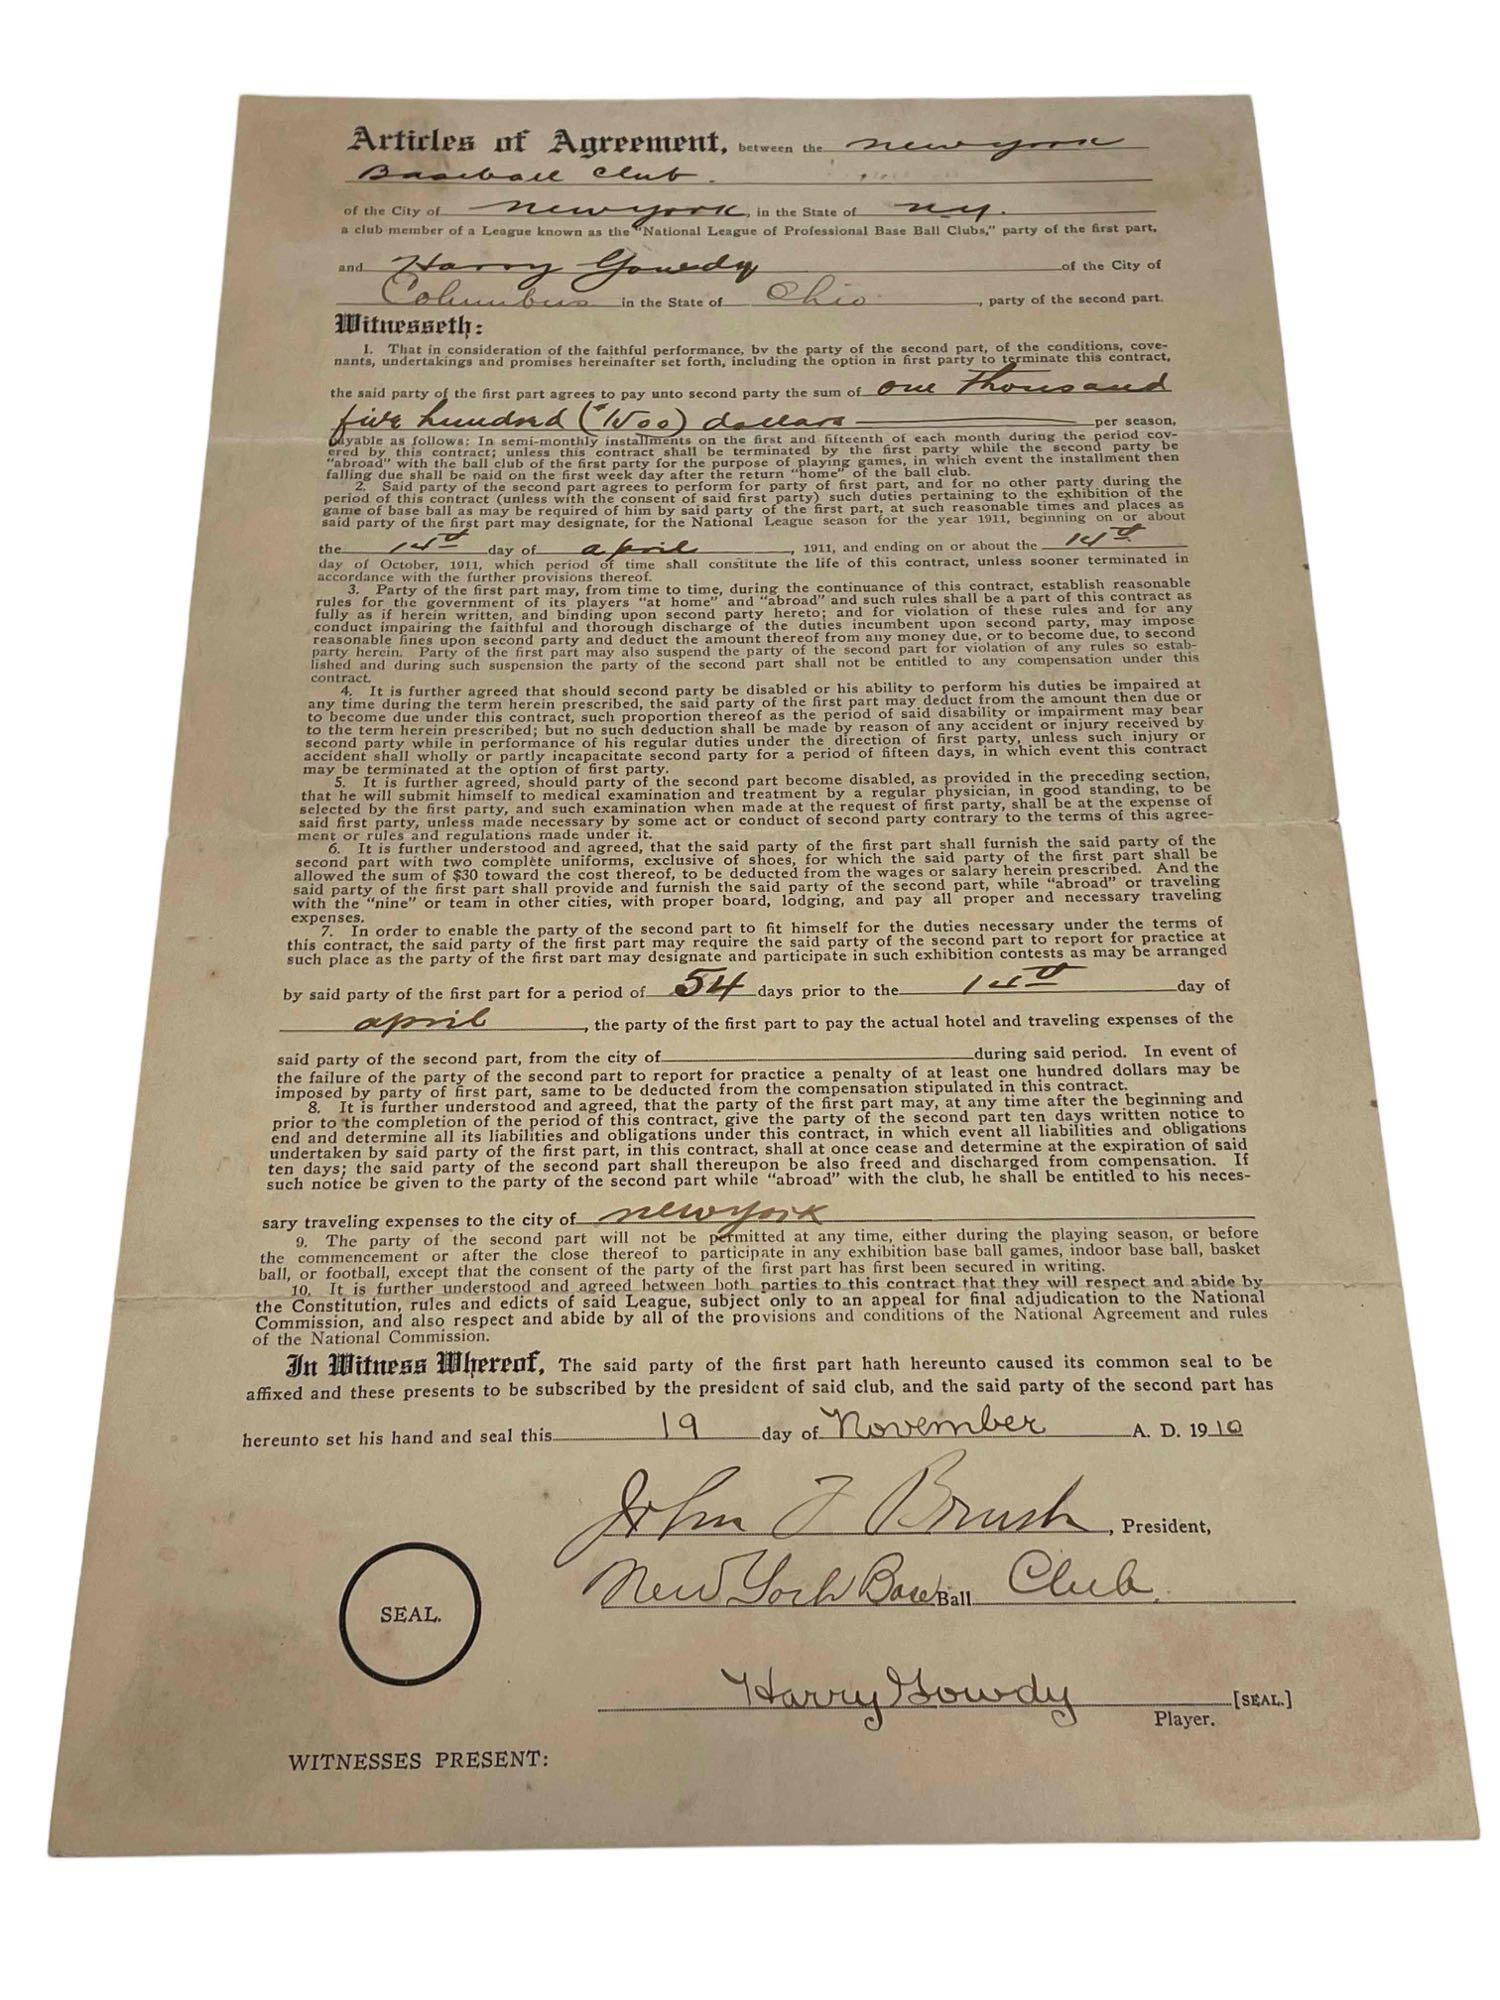 Articles of Agreement, between the New York
Baseball Club.
of the City of New York, in the State of N.Y.
a club member of a League known as the "National League of Professional Base Ball Clubs," party of the first part,
and Harry Gowdy of the City of
Columbus in the State of Ohio, party of the second part.
Witnesseth:
1. That in consideration of the faithful performance, by the party of the second part, of the conditions, cove-
nants, undertakings and promises hereinafter set forth, including the option in first party to terminate this contract,
the said party of the first part agrees to pay unto second party the sum of one thousand
five hundred ($1500) dollars per season,
payable as follows: In semi-monthly installments on the first and fifteenth of each month during the period cov-
ered by this contract; unless this contract shall be terminated by the first party while the second party be
"abroad" with the ball club of the first party for the purpose of playing games, in which event the installment then
falling due shall be paid on the first week day after the return "home" of the ball club.
2. Said party of the second part agrees to perform for party of first part, and for no other party during the
period of this contract (unless with the consent of said first party) such duties pertaining to the exhibition of the
game of base ball as may be required of him by said party of the first part, at such reasonable times and places as
said party of the first part may designate, for the National League season for the year 1911, beginning on or about
the 14th day of April, 1911, and ending on or about the 14th
day of October, 1911, which period of time shall constitute the life of this contract, unless sooner terminated in
accordance with the further provisions thereof.
3. Party of the first part may, from time to time, during the continuance of this contract, establish reasonable
rules for the government of its players "at home" and "abroad" and such rules shall be a part of this contract as
fully as if herein written, and binding upon second party hereto; and for violation of these rules and for any
conduct impairing the faithful and thorough discharge of the duties incumbent upon second party, may impose
reasonable fines upon second party and deduct the amount thereof from any money due, or to become due, to second
party herein. Party of the first part may also suspend the party of the second part for violation of any rules so estab-
lished and during such suspension the party of the second part shall not be entitled to any compensation under this
contract.
4. It is further agreed that should second party be disabled or his ability to perform his duties be impaired at
any time during the term herein prescribed, the said party of the first part may deduct from the amount then due or
to become due under this contract, such proportion thereof as the period of said disability or impairment may bear
to the term herein prescribed; but no such deduction shall be made by reason of any accident or injury received by
second party while in performance of his regular duties under the direction of first party, unless such injury or
accident shall wholly or partly incapacitate second party for a period of fifteen days, in which event this contract
may be terminated at the option of first party.
5. It is further agreed, should party of the second part become disabled, as provided in the preceding section,
that he will submit himself to medical examination and treatment by a regular physician, in good standing, to be
selected by the first party, and such examination when made at the request of first party, shall be at the expense of
said first party, unless made necessary by some act or conduct of second party contrary to the terms of this agree-
ment or rules and regulations made under it.
6. It is further understood and agreed, that the said party of the first part shall furnish the said party of the
second part with two complete uniforms, exclusive of shoes, for which the said party of the first part shall be
allowed the sum of $30 toward the cost thereof, to be deducted from the wages or salary herein prescribed. And the
said party of the first part shall provide and furnish the said party of the second part, while "abroad" or traveling
with the "nine" or team in other cities, with proper board, lodging, and pay all proper and necessary traveling
expenses.
7. In order to enable the party of the second part to fit himself for the duties necessary under the terms of
this contract, the said party of the first part may require the said party of the second part to report for practice at
such place as the party of the first part may designate and participate in such exhibition contests as may be arranged
by said party of the first part for a period of 54 days prior to the 14th day of
April, the party of the first part to pay the actual hotel and traveling expenses of the
said party of the second part, from the city of during said period. In event of
the failure of the party of the second part to report for practice a penalty of at least one hundred dollars may be
imposed by party of first part, same to be deducted from the compensation stipulated in this contract.
8. It is further understood and agreed, that the party of the first part may, at any time after the beginning and
prior to the completion of the period of this contract, give the party of the second part ten days written notice to
end and determine all its liabilities and obligations under this contract, in which event all liabilities and obligations
undertaken by said party of the first part, in this contract, shall at once cease and determine at the expiration of said
ten days; the said party of the second part shall thereupon be also freed and discharged from compensation. If
such notice be given to the party of the second part while "abroad" with the club, he shall be entitled to his neces-
sary traveling expenses to the city of New York
9. The party of the second part will not be permitted at any time, either during the playing season, or before
the commencement or after the close thereof to participate in any exhibition base ball games, indoor base ball, basket
ball, or football, except that the consent of the party of the first part has first been secured in writing.
10. It is further understood and agreed between both parties to this contract that they will respect and abide by
the Constitution, rules and edicts of said League, subject only to an appeal for final adjudication to the National
Commission, and also respect and abide by all of the provisions and conditions of the National Agreement and rules
of the National Commission.
In Witness Whereof, The said party of the first part hath hereunto caused its common seal to be
affixed and these presents to be subscribed by the president of said club, and the said party of the second part has
hereunto set his hand and seal this 19 day of November A. D. 1910
John T Brush, President,
New York Base Ball Club.
SEAL.
Harry Gowdy [SEAL.]
Player.
WITNESSES PRESENT: